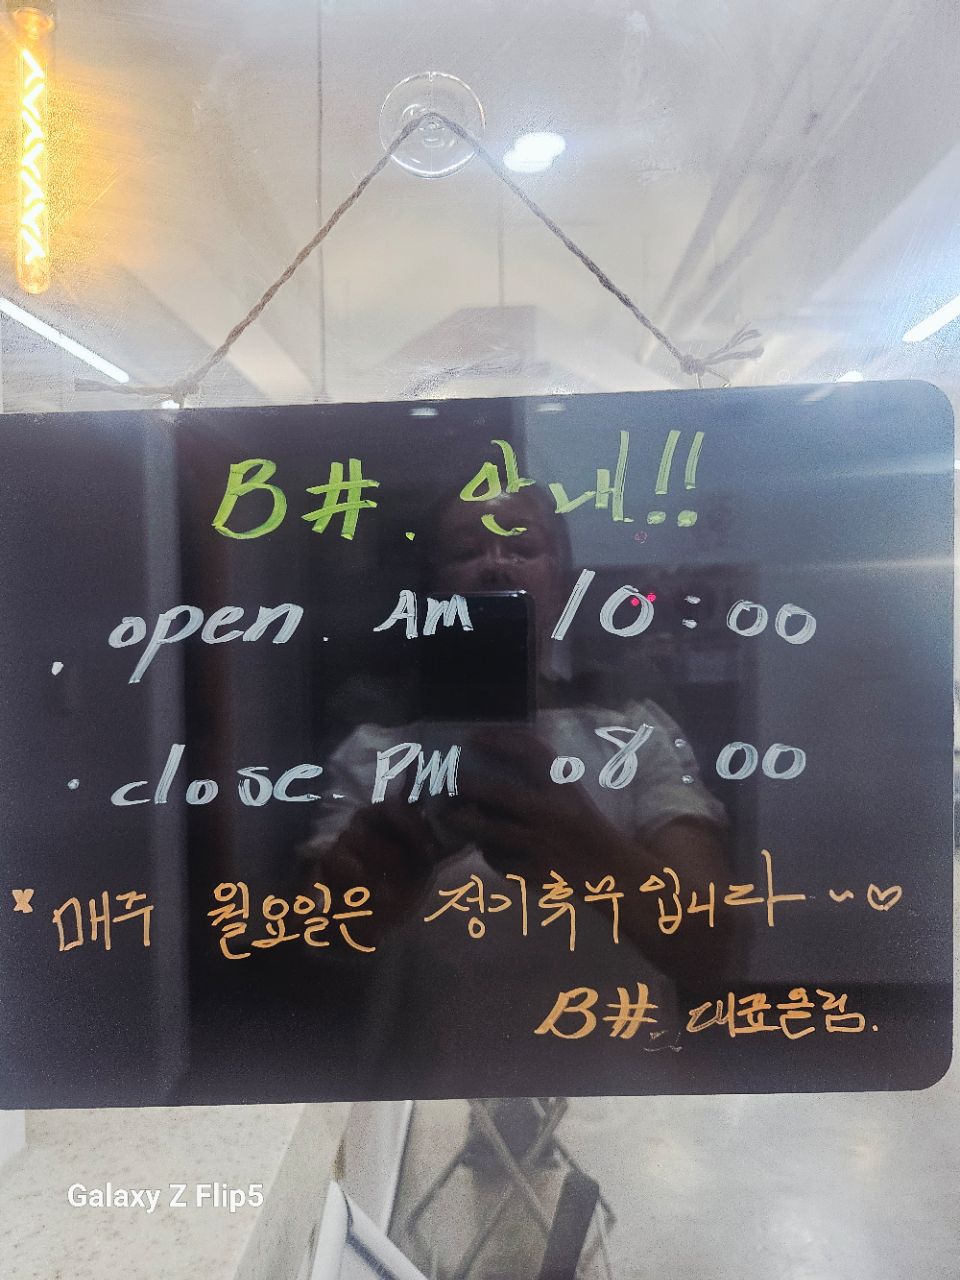 B#. 안내!!
. open. AM 10:00
· close. PM 08:00
* 매주 월요일은 정기휴무입니다~♡
B# 대표올림.
Galaxy Z Flip5